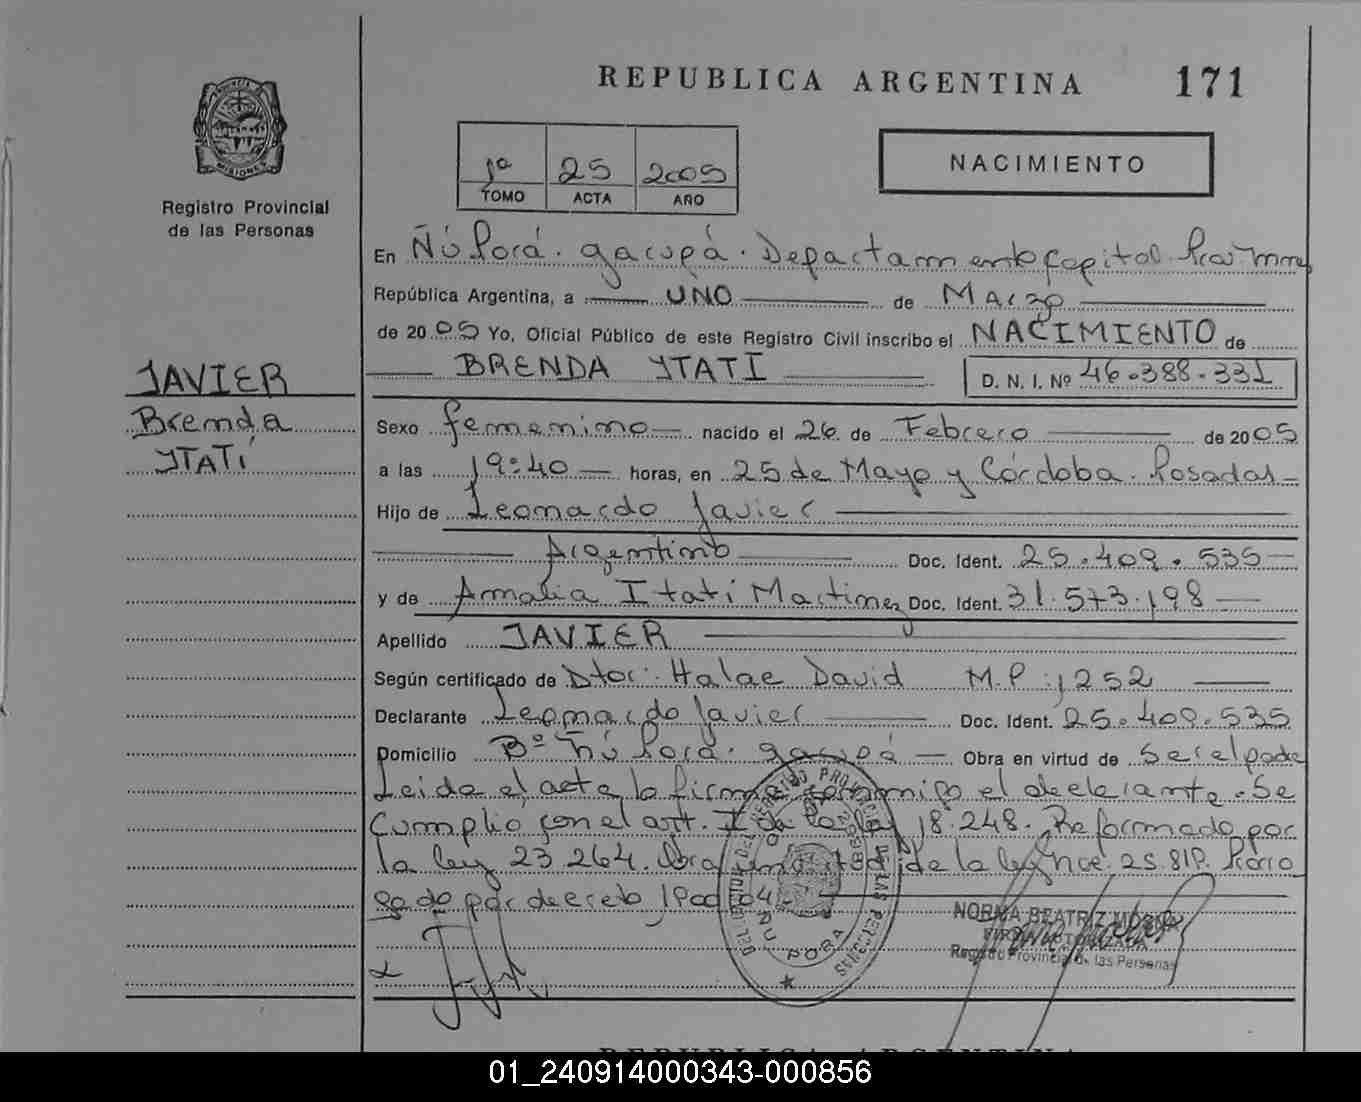 REPUBLICA ARGENTINA 171
1ª 25 2005
TOMO ACTA AÑO
NACIMIENTO
MISIONES
Registro Provincial
de las Personas
En Ñú Porá. garupá. Departamento Capital
República Argentina, a UNO de Marzo
de 2005 Yo, Oficial Público de este Registro Civil inscribo el NACIMIENTO de
BRENDA YTATÍ D. N. I. Nº 46.388.331
JAVIER
Brenda
YTATÍ
Sexo femenino nacido el 26 de Febrero de 2005
a las 19:40 horas, en 25 de Mayo y Córdoba. Posadas
Hijo de Leonardo Javier
Argentino Doc. Ident. 25.409.535
y de Amalia Itatí Martinez Doc. Ident. 31.573.198
Apellido JAVIER
Según certificado de Dtor: Halae David M.P:1252
Declarante Leonardo Javier Doc. Ident. 25.409.535
Domicilio Bº Ñú Porá. garupá Obra en virtud de Ser el padre
Leida el acta la firma conmigo el declarante. Se
Cumplio con el art. I de la ley 18.248. Reformado por
la ley 23.264. Obra en de la ley nro. 25.819. Prorro
gado por decreto
PORA
NORMA BEATRIZ
Registro Provincial de las Personas
REPUBLICA ARGENTINA
01_240914000343-000856